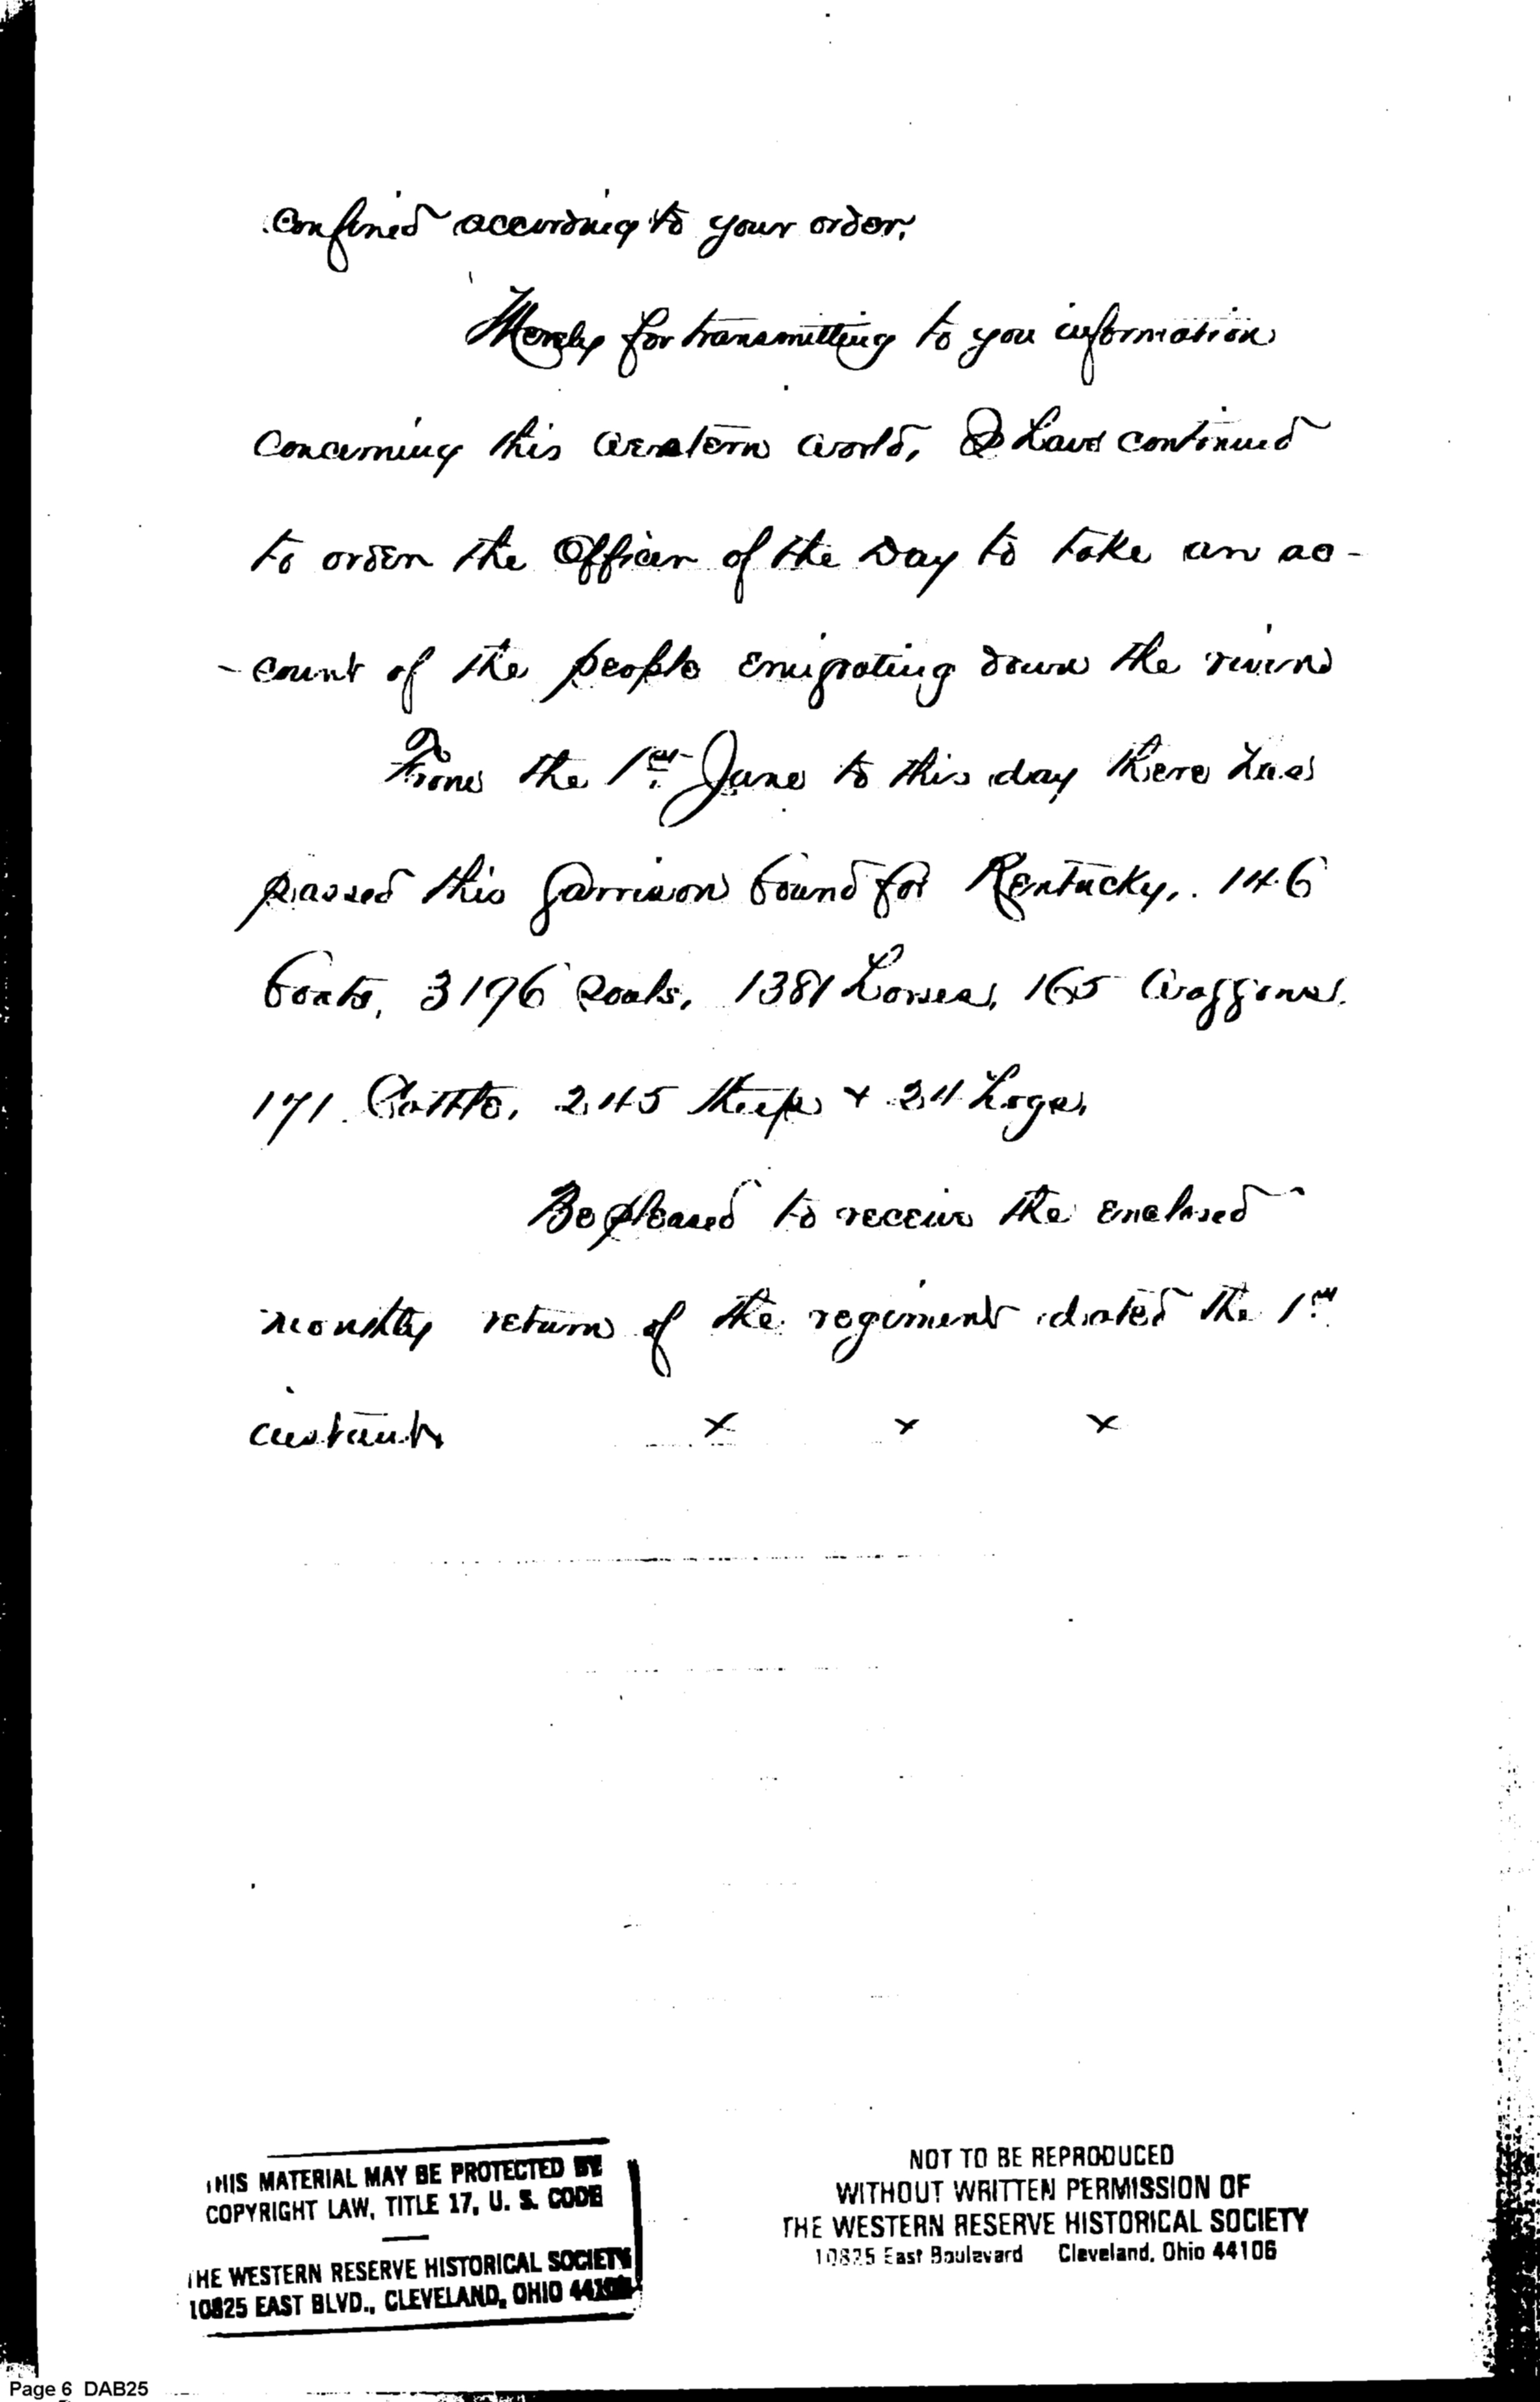 confined according to your order.
Merely for transmitting to you information
concerning this western world, I have continued
to order the Officer of the Day to take an ac-
-count of the people emigrating down the river
From the 1st June to this day there has
passed this garrison bound for Kentucky, 146
boats, 3196 souls, 1381 horses, 165 waggons.
171 Cattle, 245 sheep + 24 hogs.
Be pleased to receive the enclosed
monthly return of the regiment dated the 1st
instant. x x x
THIS MATERIAL MAY BE PROTECTED BY
COPYRIGHT LAW, TITLE 17, U. S. CODE
THE WESTERN RESERVE HISTORICAL SOCIETY
10825 EAST BLVD., CLEVELAND, OHIO 44106
NOT TO BE REPRODUCED
WITHOUT WRITTEN PERMISSION OF
THE WESTERN RESERVE HISTORICAL SOCIETY
10825 East Boulevard Cleveland, Ohio 44106
Page 6 DAB25